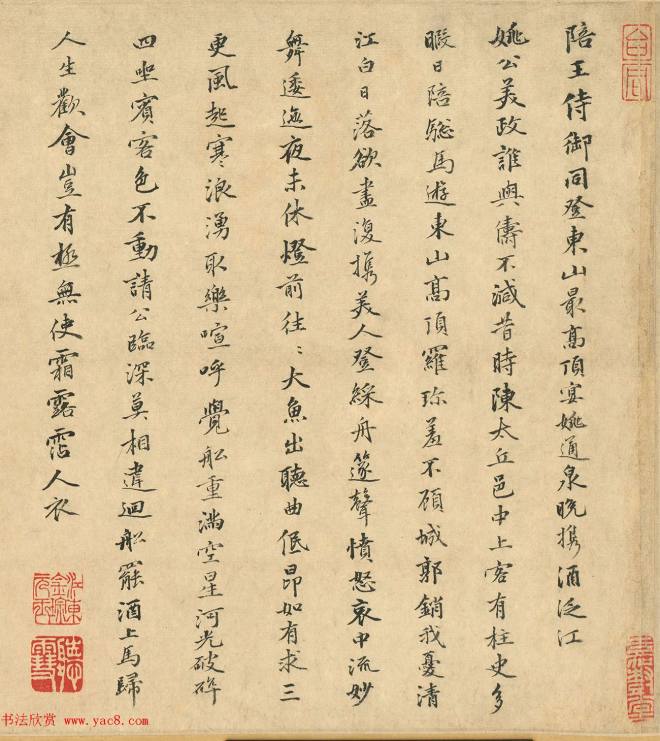 陪王侍御同登東山最高頂宴姚通泉晚携酒泛江
姚公美政誰與儔不減昔時陳太丘邑中上客有柱史多
暇日陪驄馬遊東山高頂羅珎羞不顧城郭銷我憂清
江白日落欲盡復携美人登綵舟篴聲憤怒哀中流妙
舞逶迤夜未休燈前往〻大魚出聽曲低昂如有求三
更風起寒浪湧取樂喧呼覺舩重滿空星河光破碎
四坐賓客色不動請公臨深莫相違迴舩罷酒上馬歸
人生歡會豈有極無使霜露霑人衣
书法欣赏 www.yac8.com